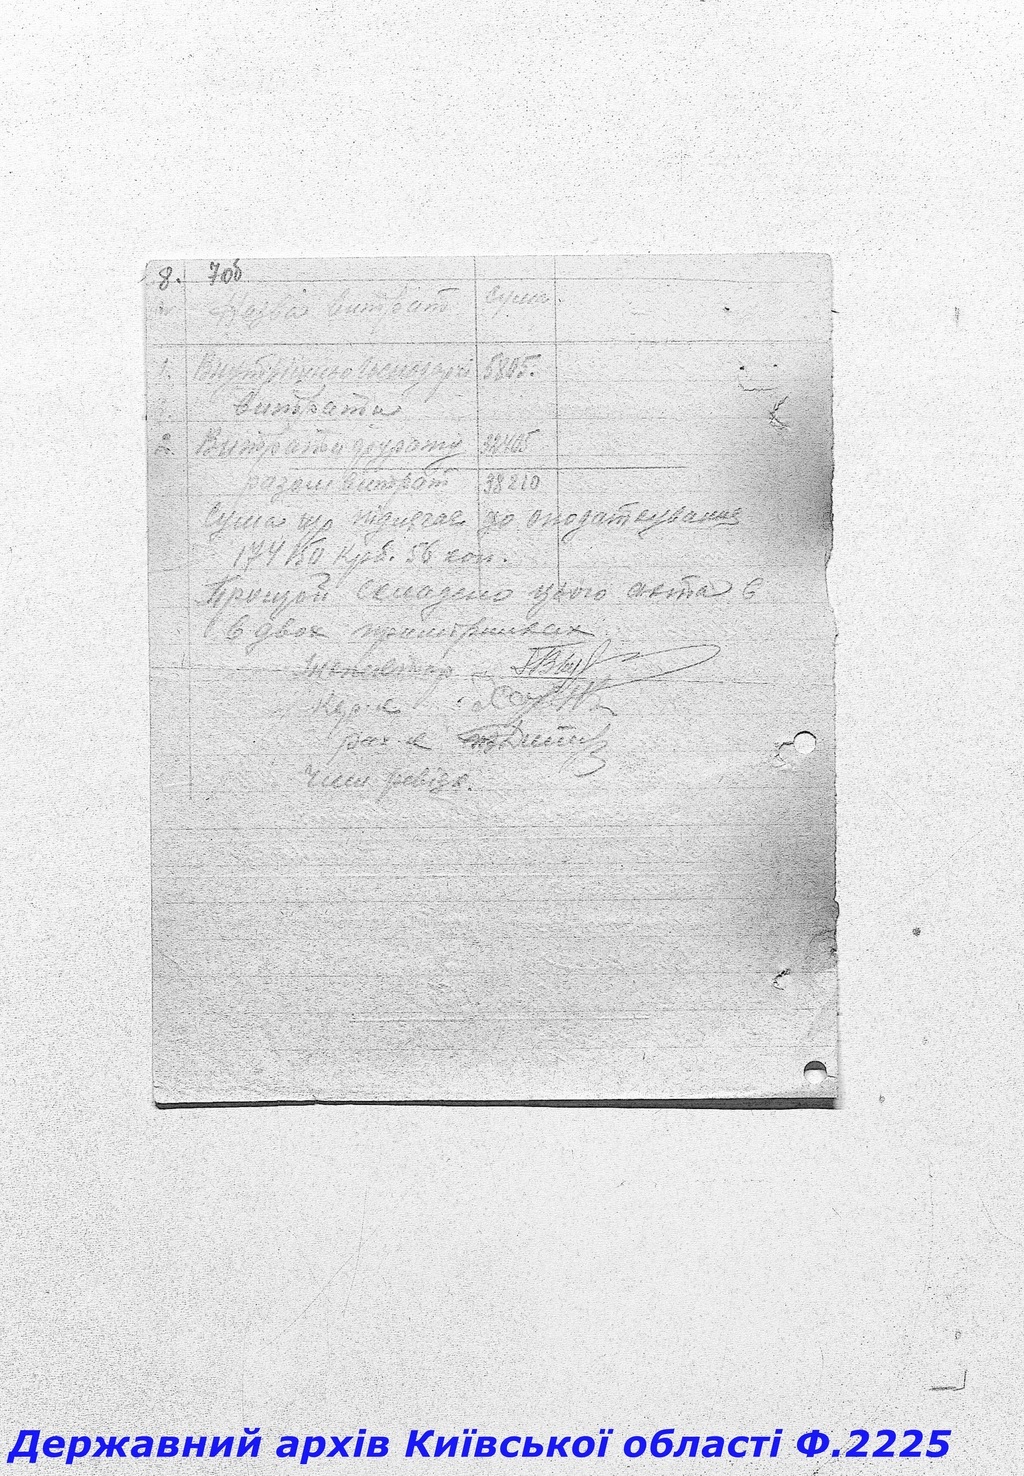 8. 7об
Назва витрат Сума.
1. Внутрішньо господарчі 5805.
витрати
2. Витрати 32405
разом витрат 38210
Сума що підлягає до оподаткування
174150 крб. 56 коп.
Про що й складено цього акта в
в двох примірниках
Інспектор
Керів
рах-в
Член ревізк.
Державний архів Київської області Ф.2225